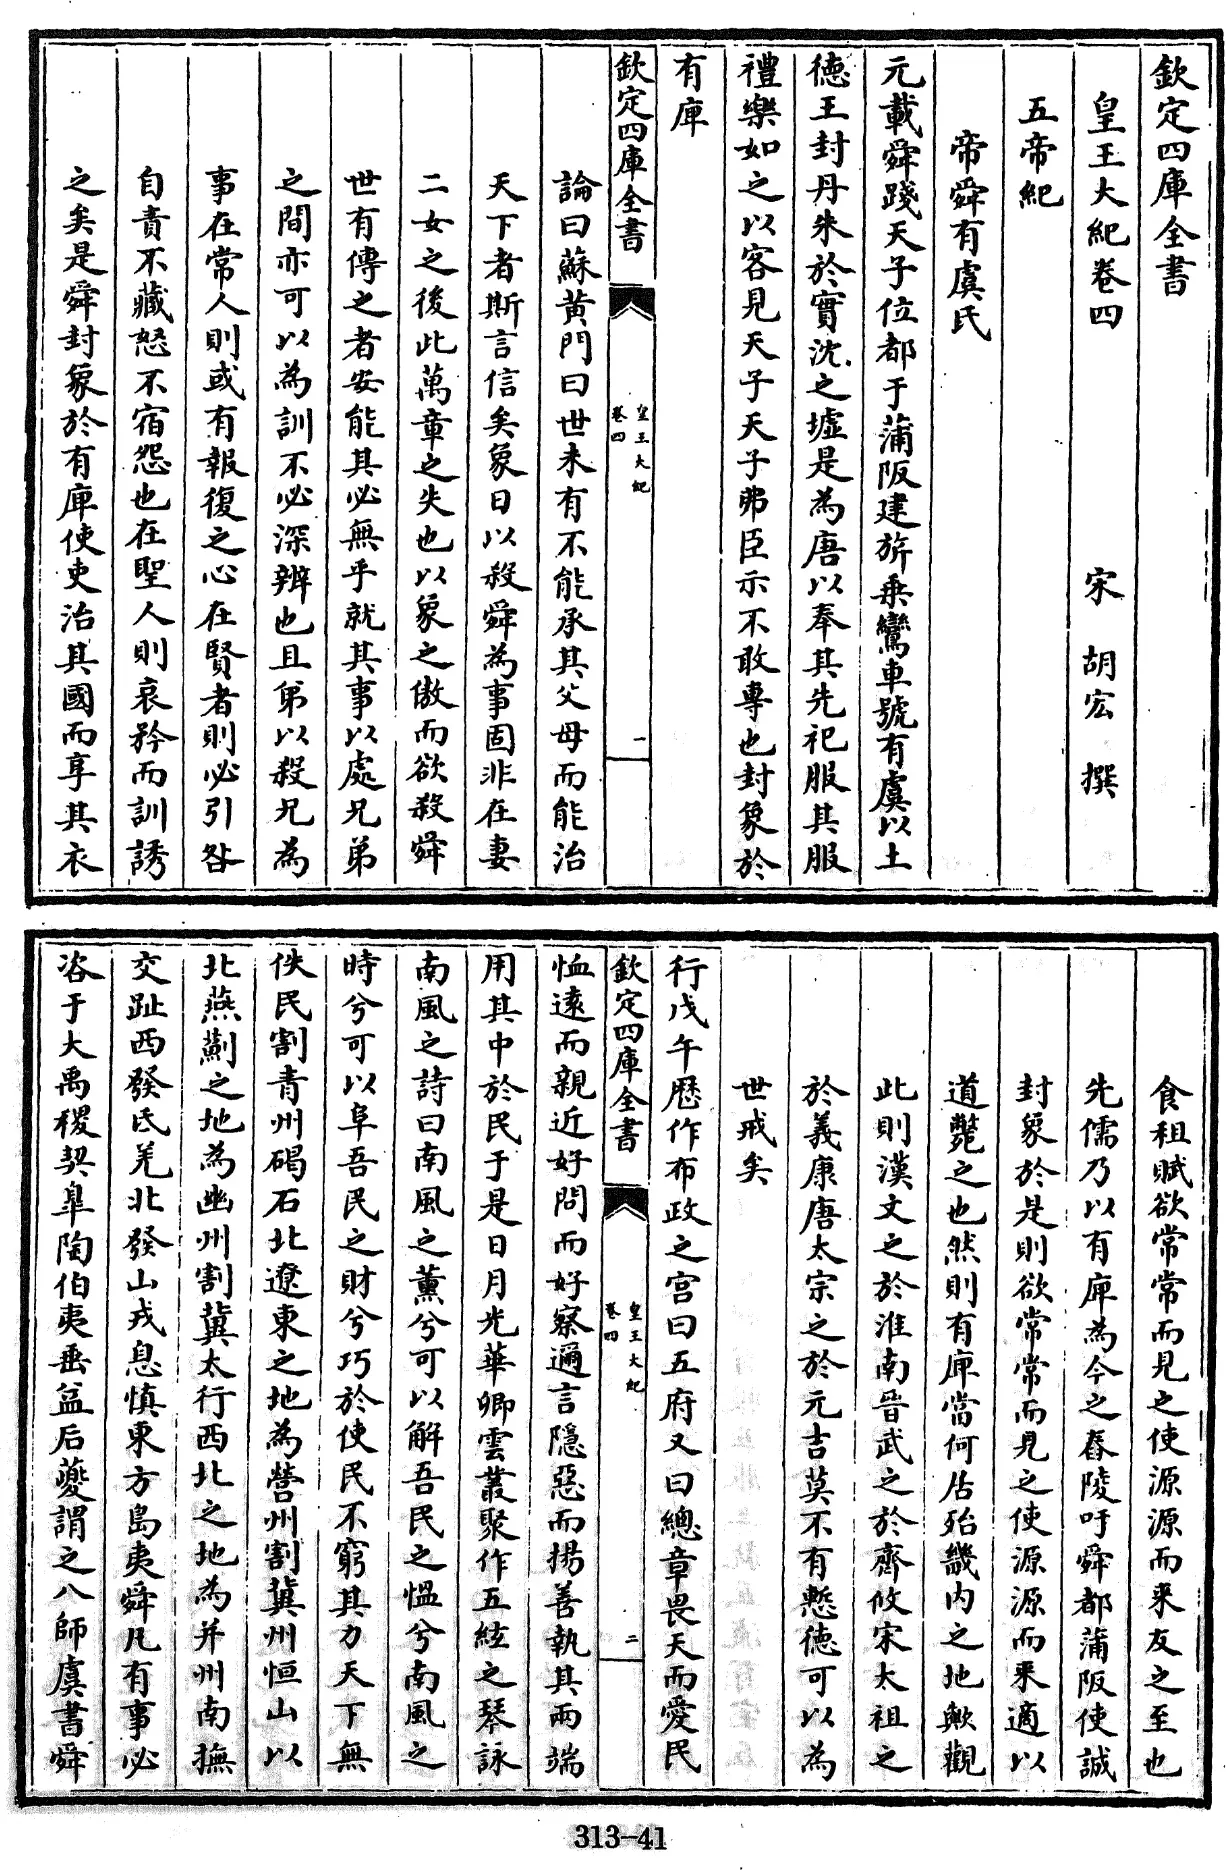 欽定四庫全書
皇王大紀卷四
宋 胡宏 撰
五帝紀
帝舜有虞氏
元載舜踐天子位都于蒲阪建旂乗鸞車號有虞以土
德王封丹朱於實沈之墟是為唐以奉其先祀服其服
禮樂如之以客見天子天子弗臣示不敢專也封象於
有庳
欽定四庫全書
皇王大紀
卷四
一
論曰蘇黄門曰世未有不能承其父母而能治
天下者斯言信矣象日以殺舜為事固非在妻
二女之後此萬章之失也以象之傲而欲殺舜
世有傳之者安能其必無乎就其事以處兄弟
之間亦可以為訓不必深辨也且弟以殺兄為
事在常人則或有報復之心在賢者則必引咎
自責不藏怒不宿怨也在聖人則哀矜而訓誘
之矣是舜封象於有庳使吏治其國而享其衣
食租賦欲常常而見之使源源而来友之至也
先儒乃以有庳為今之舂陵吁舜都蒲阪使誠
封象於是則欲常常而見之使源源而来適以
道斃之也然則有庳當何居殆畿内之地歟觀
此則漢文之於淮南晉武之於齊攸宋太祖之
於義康唐太宗之於元吉莫不有慙德可以為
世戒矣
行戊午歴作布政之宫曰五府又曰總章畏天而愛民
欽定四庫全書
皇王大紀
卷四
二
恤逺而親近好問而好察邇言隱惡而揚善執其兩端
用其中於民于是日月光華卿雲叢聚作五絃之琴詠
南風之詩曰南風之薰兮可以解吾民之愠兮南風之
時兮可以阜吾民之財兮巧於使民不窮其力天下無
佚民割青州碣石北遼東之地為營州割冀州恒山以
北燕薊之地為幽州割冀太行西北之地為并州南撫
交趾西發氐羌北發山戎息慎東方島夷舜凡有事必
咨于大禹稷契臯陶伯夷垂益后夔謂之八師虞書舜
313-41